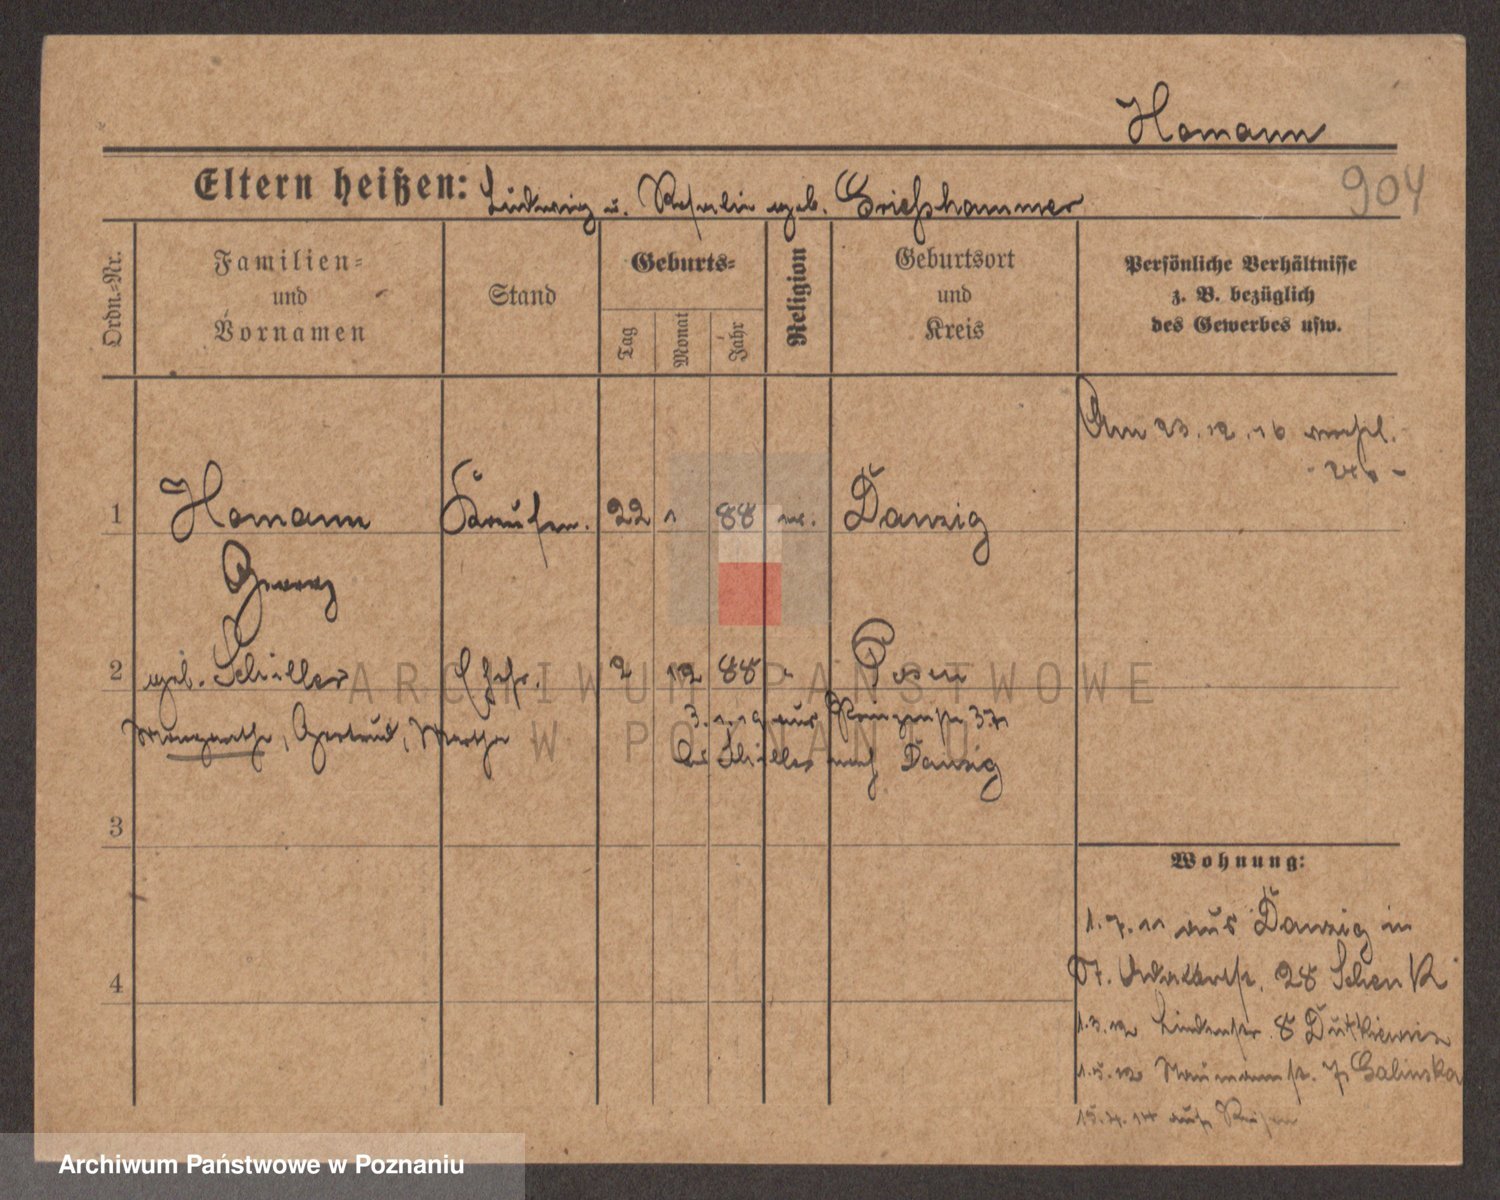 Homann
904
Eltern heißen: Ludwig u. geb. Grießhammer
Ordn.-Nr.
Familien- und Vornamen
Stand
Geburts-
Tag
Monat
Jahr
Religion
Geburtsort und Kreis
Persönliche Verhältnisse z. B. bezüglich des Gewerbes usw.
Am 23.12.16
1 Homann Kaufm. 22 1 88 Danzig
Georg
2 geb. Schiller Ehefr. 2 12 88 Posen
Margarethe, Gertrud, Martha
3.1.19 aus 37
Schiller nach Danzig
3
4
Wohnung:
1.7.11 aus Danzig in
28 Schenk
1.3.12 Lindenstr. 8 Dutkiewicz
1.5.12 Naumannstr. 7 Galinska
15.4.14 auf Reisen
ARCHIWUM PAŃSTWOWE
W POZNANIU
Archiwum Państwowe w Poznaniu